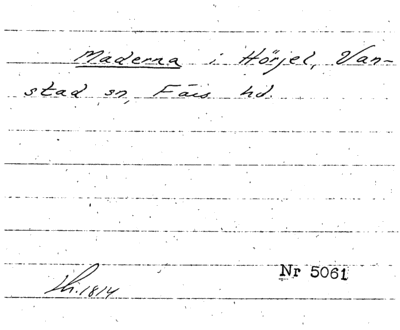 Maderna i Hörjel, Van-
stad sn, Färs hd.
Nr 5061
Lh. 1814